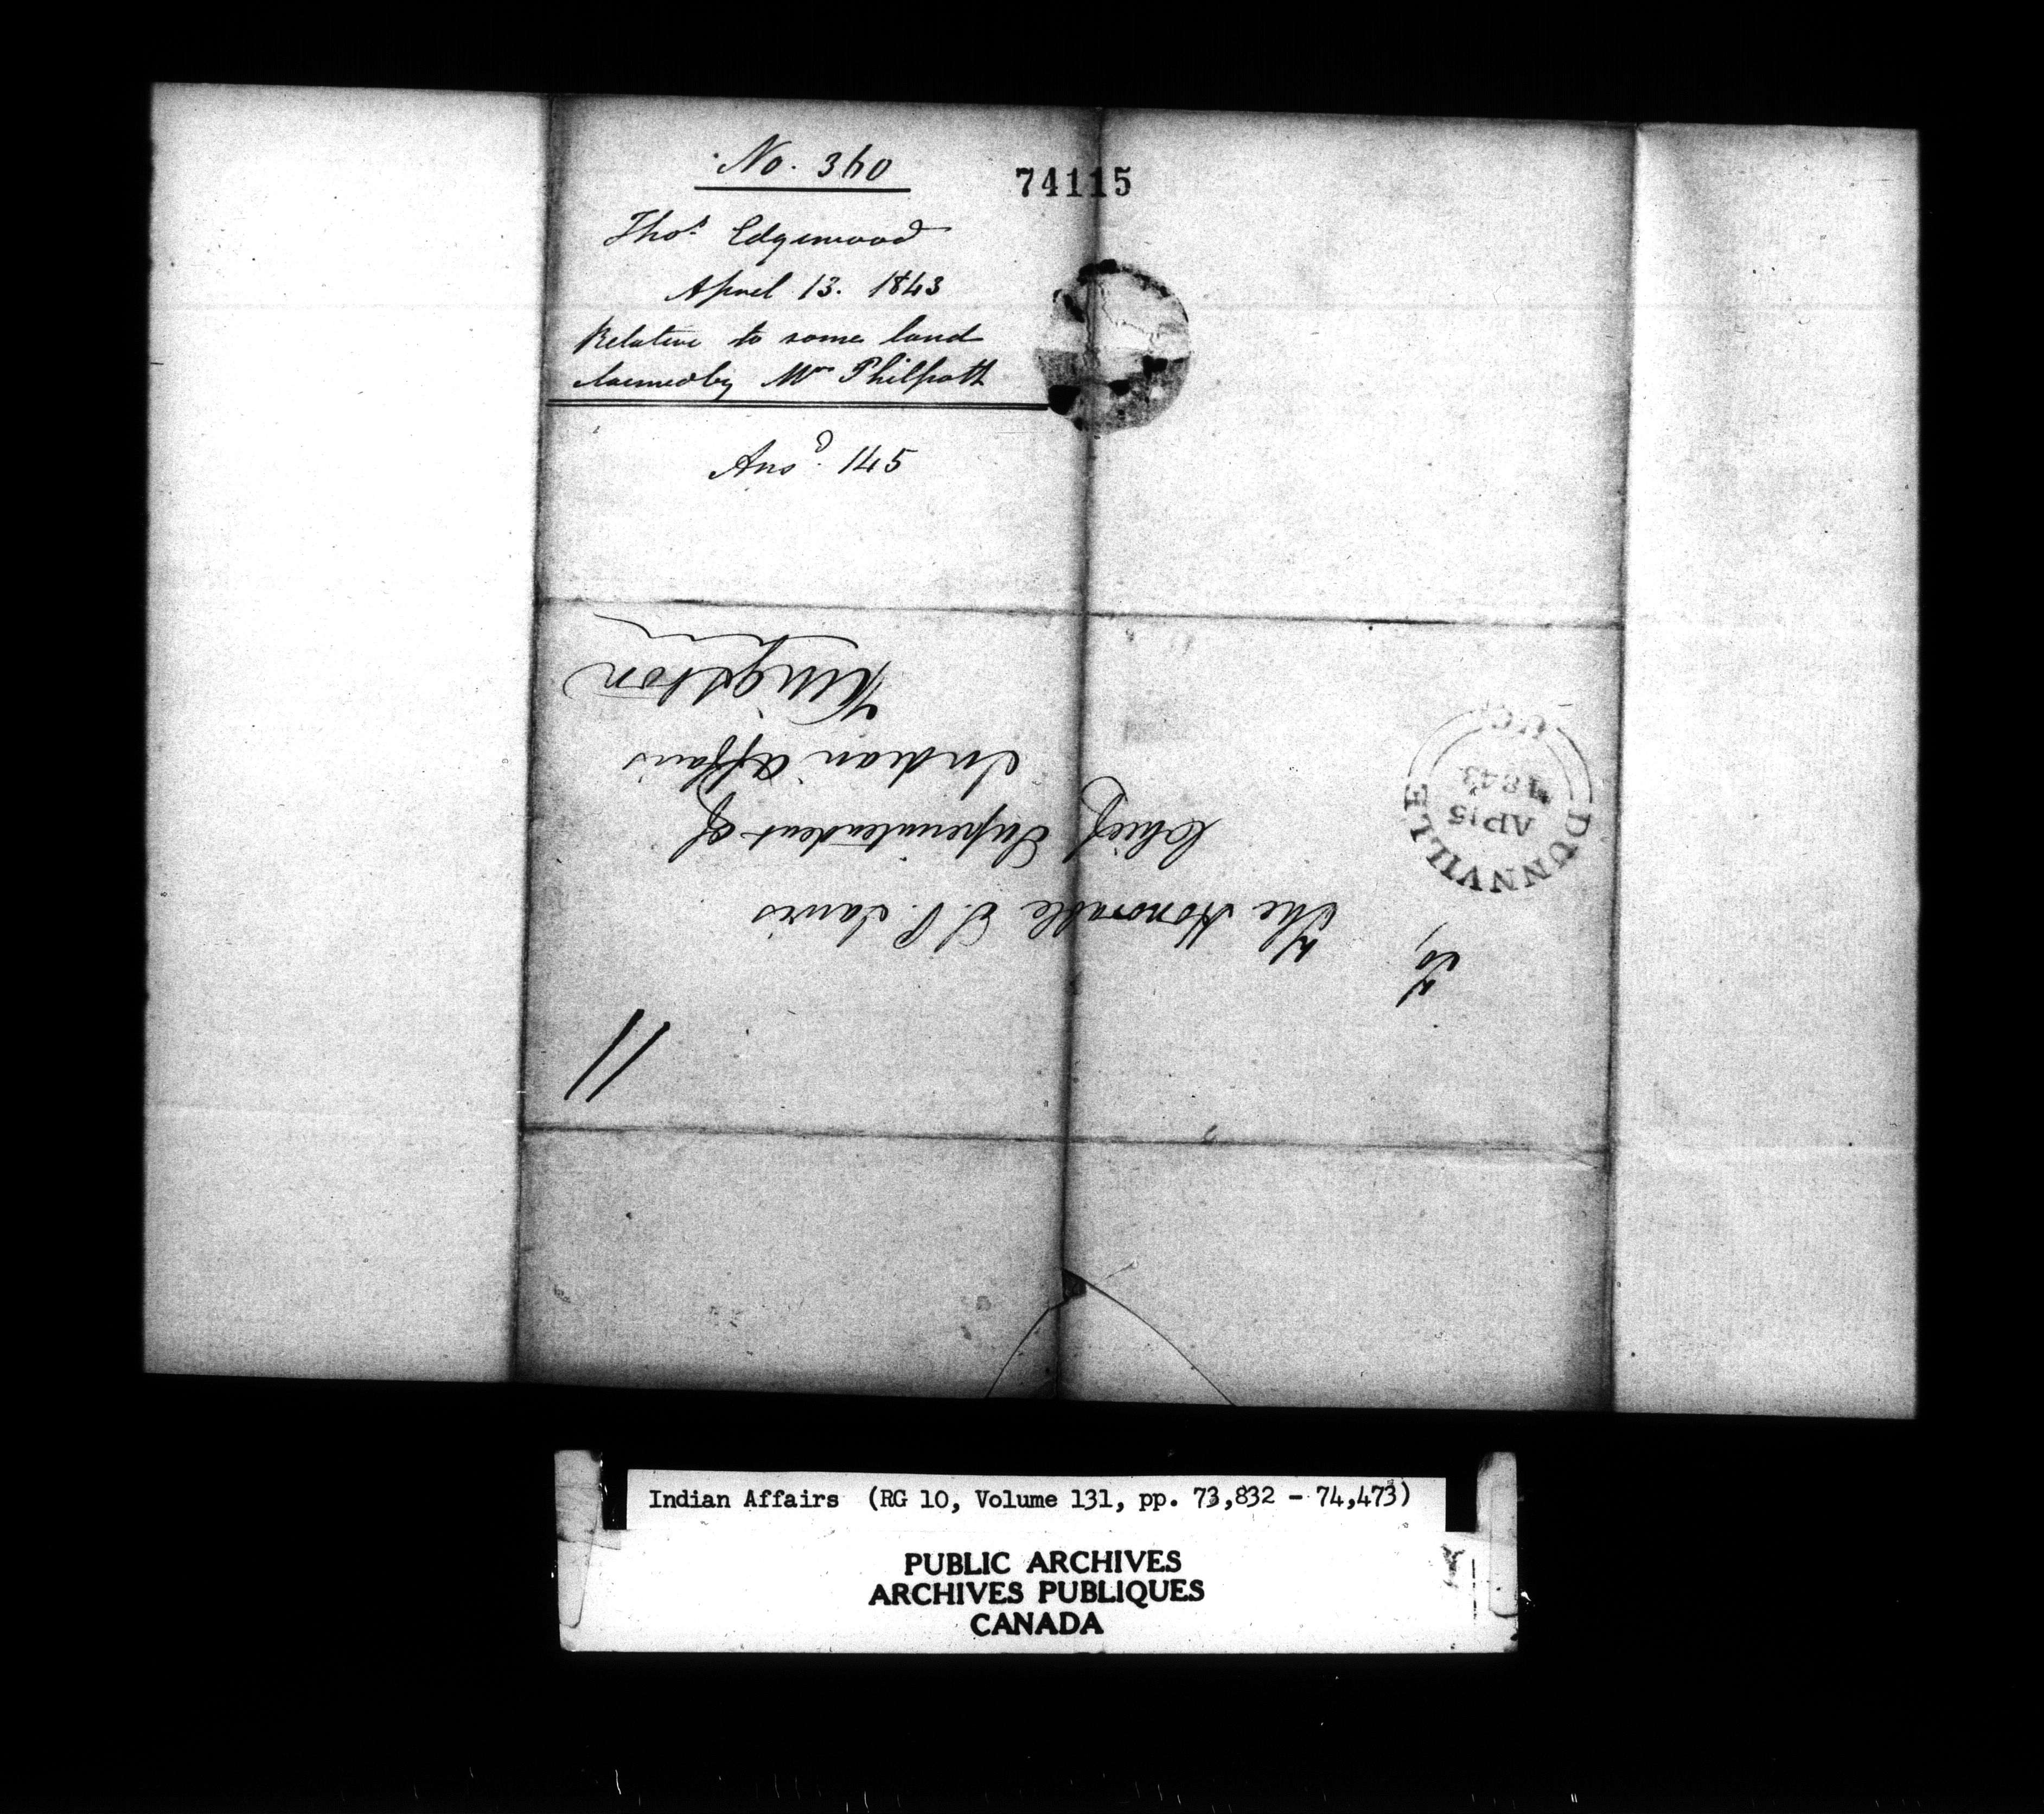 No. 360
74115
Thos. Edgewood
April 13. 1843
Relative to some land
claimed by Mrs Philpott
Ansd. 145
To,
The Honorable S. P. Jarvis
Chief Superintendent of
Indian Affairs
Kingston
11
DUNNVILLE
AP 15
1843
U.C.
Indian Affairs (RG 10, Volume 131, pp. 73,832 - 74,473)
PUBLIC ARCHIVES
ARCHIVES PUBLIQUES
CANADA